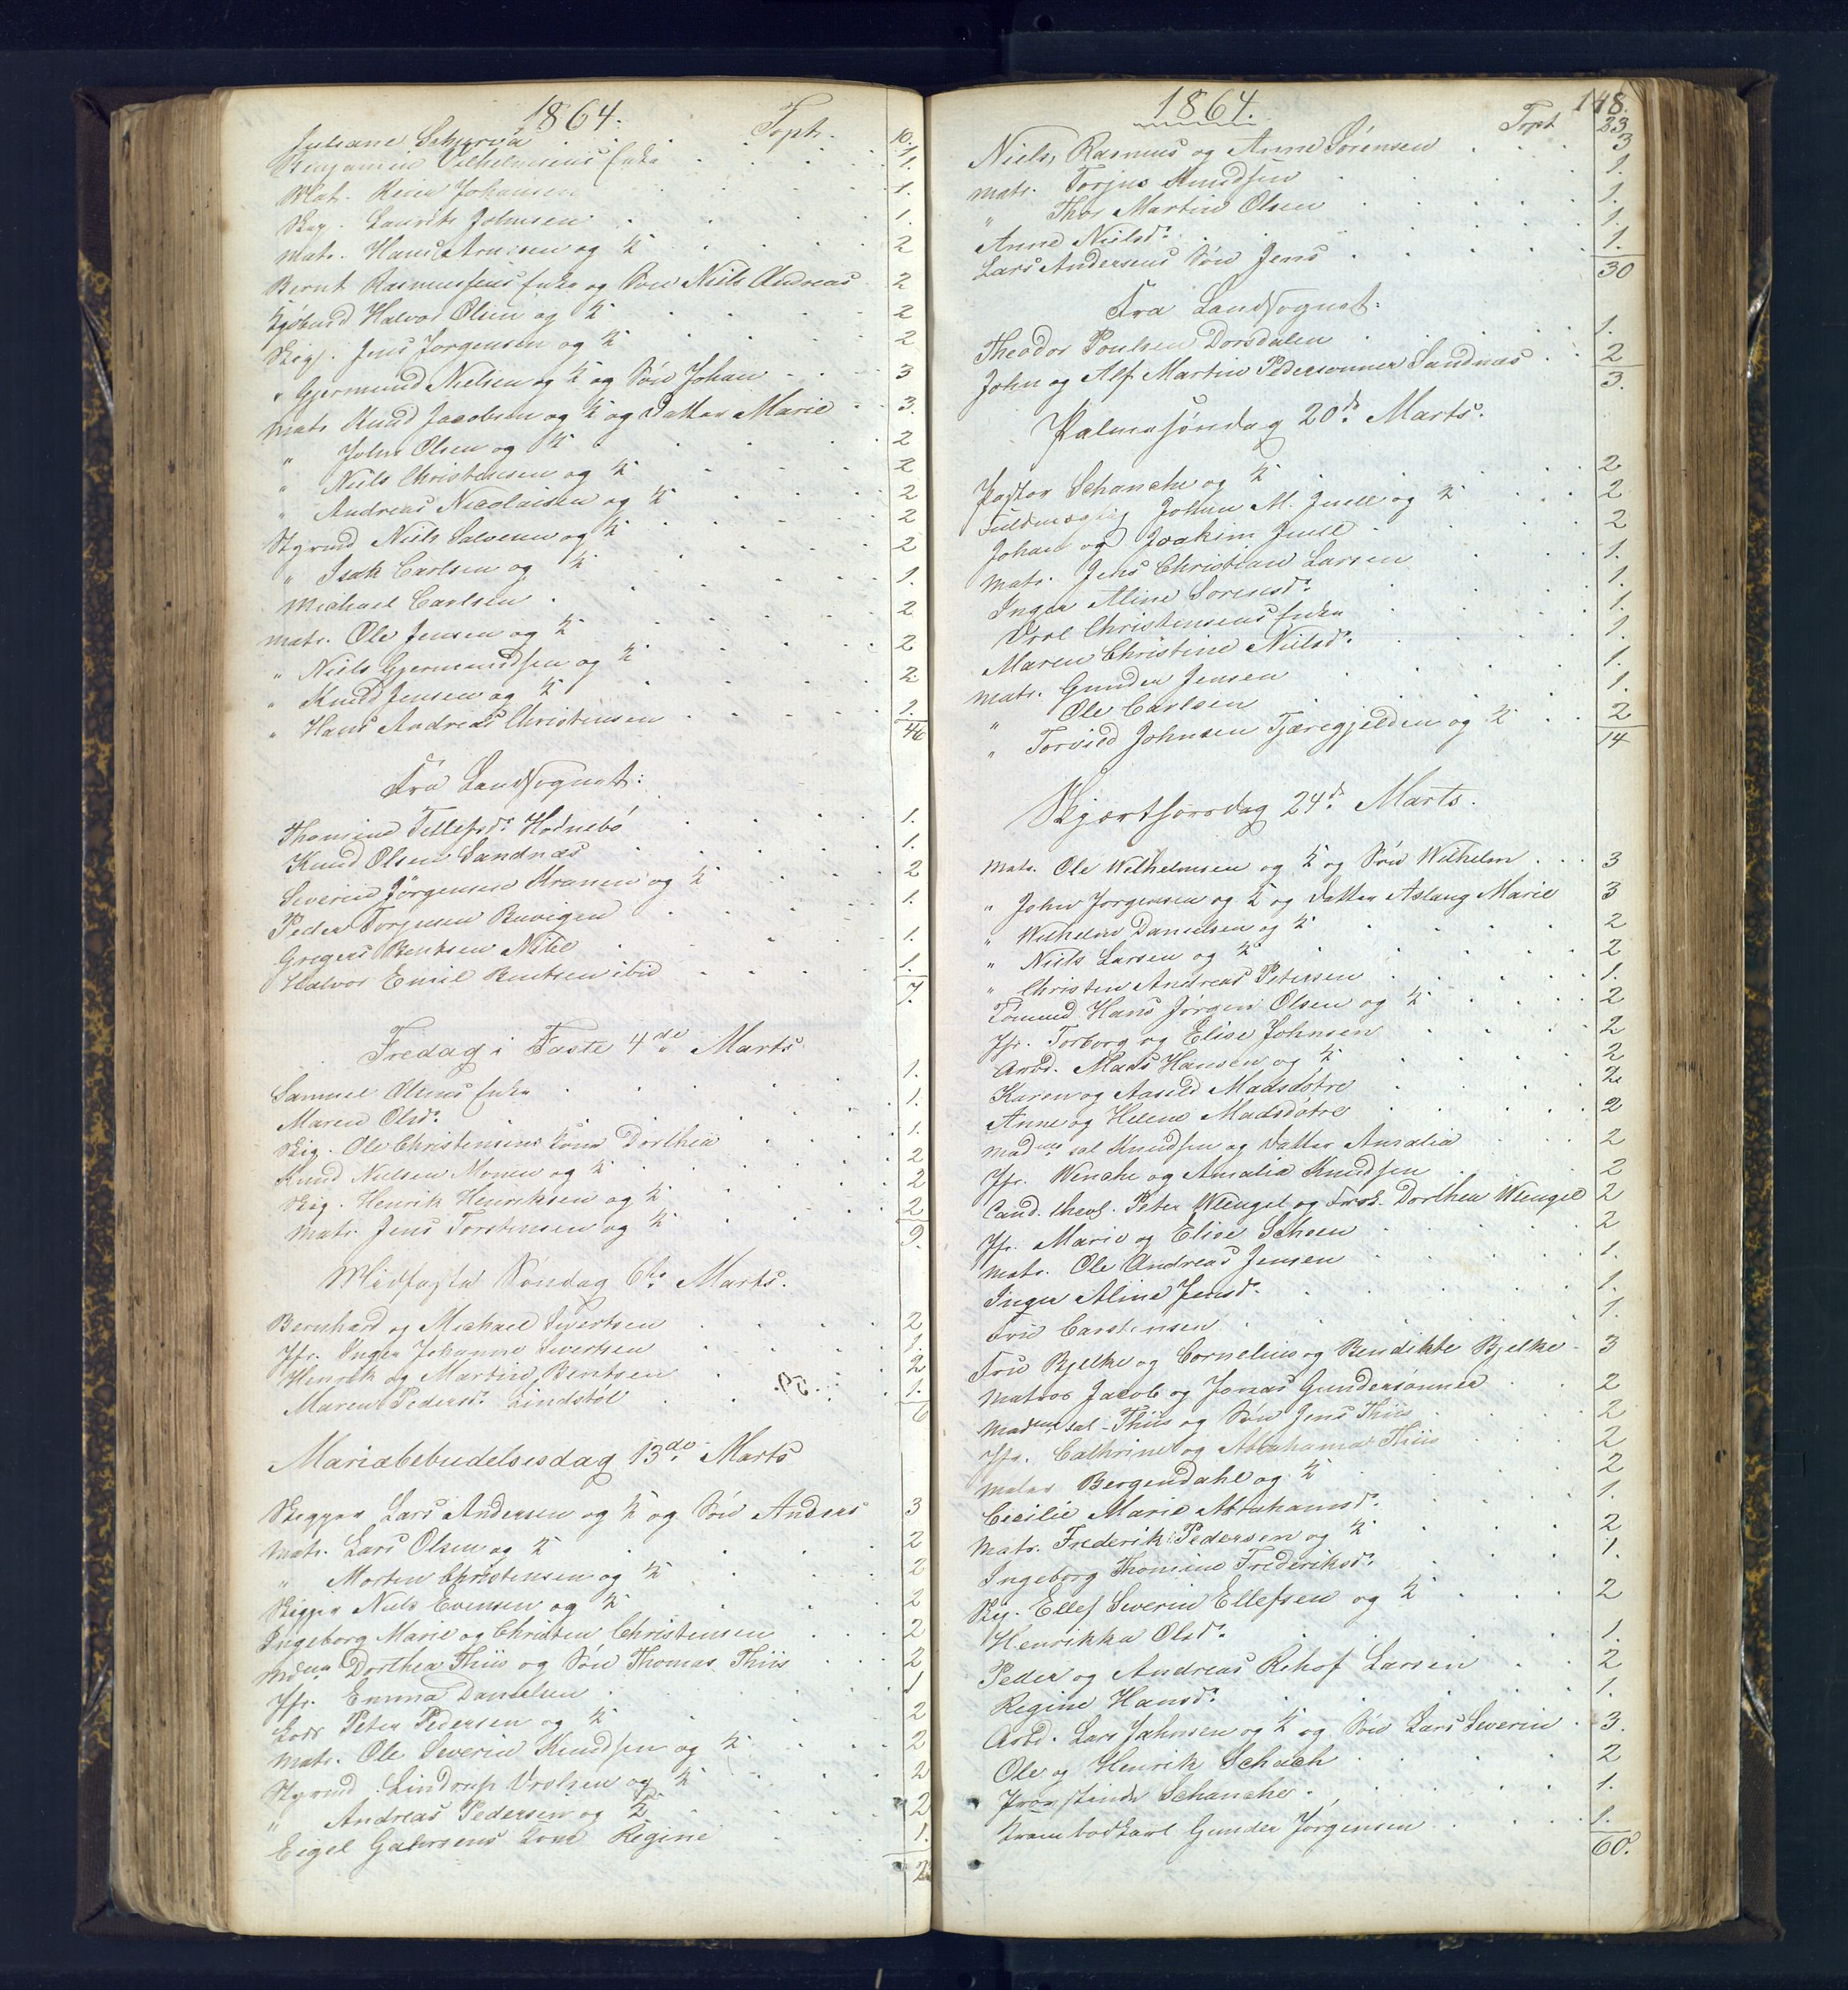 1864.
Transpt. 10.
Juliane Schjerva . . . 1.
Benjamin Vilhelmsens Enke . . . 1.
Mat. Reier Johansen . . . 1.
Skip. Laurits Johnsen . . . 1.
Matr. Hans Arnesen og K . . . 2
Bernt Rasmussens Enke og Søn Niels Andreas 2
Halvor Olsen og K . . . 2
Skip. Jens Jørgensen og K . . . 2
" Gjermund Nielsen og K og Søn Johan . . 3
Matr. Knud Jacobsen og K og Datter Marie . . 3.
" John Olsen og K . . . 2
" Niels Christensen og K . . . 2
" Andreas Nicolaisen og K . . . 2
Styrmd Niels Salvesen og K . . . 2
" Isak Carlsen og K . . . 2
Michael Carlsen . . . 1.
Matr. Ole Jensen og K . . . 2
" Niels Gjermundsen og K . . . 2
" Knud Jensen og K . . . 2
" Hans Andreas Christensen . . . 1.
46
Fra Landsognet:
Thomine Tellefsd. Hødnebø . . . 1.
Knud Olsen Sandnæs . . . 1.
Severin Jørgensen Kranen og K . . . 2
Peder Torjensen Buvigen . . . 1.
Gregers Bentsen . . . 1.
Halvor Emil Bentsen ibid . . . 1.
7.
Fredag i Faste 4de Marts
Samuel Olsens Enke . . . 1.
Maren Olsd. . . . 1.
Skip. Ole Christensens Kone Dorthea . . . 1.
Knud Nielsen Monen og K . . . 2
Skip. Henrik Henriksen og K . . . 2
Matr. Jens Torstensen og K . . . 2
9.
Midfaste Søndag 6te Marts.
Bernhard og Michael Sivertsen . . . 2
Jfr. Inger Johanne Sivertsen . . . 1.
Henrik og Martin Bentsen . . . 2
Maren Pedersd. Lindstøl . . . 1.
6
Mariæbebudelsesdag 13de Marts
Skipper Lars Andersen og K og Søn Anders 3
Matr. Lars Olsen og K . . . 2
" Morten Christensen og K . . . 2
Skipper Niels Evensen og K . . . 2
Ingeborg Marie og Christen Christensen . . . 2
Dorthea Thiis og Søn Thomas Thiis . . . 2
Jfr. Emma Danielsen . . . 1
Lods Peter Pedersen og K . . . 2
Matr. Ole Severin Knudsen og K . . . 2
Styrmd. Lindrup Vrolsen og K . . . 2
" Andreas Pedersen og K . . . 2
Eigel Kone Regine . . . 1.
1864.
148.
Transpt 23
Niels, Rasmus og Anne Sørensen . . . 3
Matr. Torjus Knudsen . . . 1.
" Thor Martin Olsen . . . 1.
Anne Nielsd. . . . 1.
Lars Andersens Søn Jens . . . 1.
30
Fra Landsognet:
Theodor Poulsen Dorsdalen . . . 1.
John og Alf Martin Pedersønner Sandnæs . . 2
3.
Palmesøndag 20de Marts.
Pastor Schanche og K . . . 2
Fuldmægtig Johan M. Juell og K . . . 2
Johan og Joakim Juell . . . 2
Matr. Jens Christian Larsen . . . 1.
Inger Aline Sørensd. . . . 1.
Vrol Christensens Enke . . . 1.
Maren Christine Nielsd. . . . 1.
Matr. Gunder Jensen . . . 1.
" Ole Carlsen . . . 1.
" Torvild Johnsen Tjæregjelden og K . . 2
14
Skjærtorsdag 24de Marts.
Matr. Ole Wilhelmsen og K og Søn Wilhelm . . . 3
" John Jørgensen og K og Datter Aslaug Marie 3
" Wilhelm Danielsen og K . . . 2
" Niels Larsen og K . . . 2
" Christen Andreas Petersen . . . 1.
Tømmd Hans Jørgen Olsen og K . . . 2
Jfr. Torborg og Elise Johnsen . . . 2
Arbd. Mads Hansen og K . . . 2
Karen og Aasild Madsdøtre . . . 2
Anne og Helene Madsdøtre . . . 2
Madme sal. Knudsen og Datter Amalia . . . 2
Jfr. Wenche og Amalia Knudsen . . . 2
Cand. theol. Peter Wlengel og Frøk. Dorthea Wlengel 2
Jfr. Marie og Elise Scheen . . . 2
Matr. Ole Andreas Jensen . . . 1.
Inger Aline Jensd. . . . 1.
Fru Carstensen . . . 1.
Fru Bjelke og Cornelius og Bendikte Bjelke . 3
Matros Jacob og Jonas Gundersønner . . 2
Madme sal. Thiis og Søn Jens Thiis . . . 2
Jfr. Cathrine og Abrahama Thiis . . . 2
Maler Bergendahl og K . . . 2
Cicilie Marie Abrahamsd. . . . 1.
Matr. Frederik Pedersen og K . . . 2
Ingeborg Thomine Frederiksd. . . . 1.
Skp. Ellef Severin Ellefsen og K . . . 2
Henrikka Olsd. . . . 1.
Peder og Andreas Rehof Larsen . . 2
Regine Hansd. . . . 1.
Arbd. Lars Jahnsen og K og Søn Lars Severin . 3.
Ole og Henrik Schach . . . 2
Provstinde Schanche . . . 1.
Krambodkarl Gunder Jørgensen . . . 1.
60.